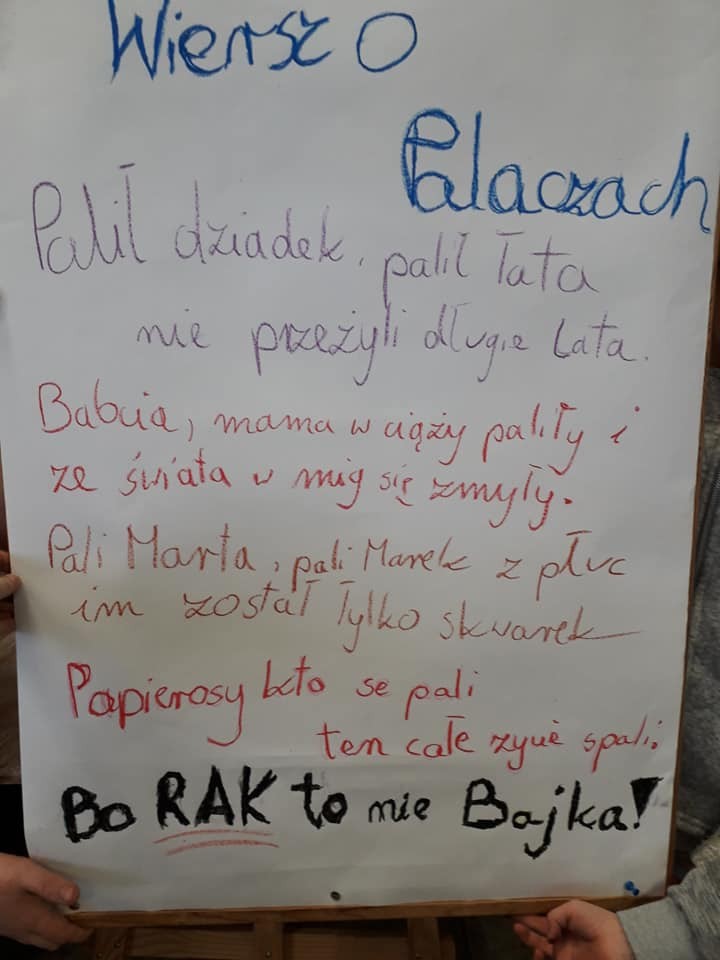 Wiersz O
Palaczach
Palił dziadek, palił tata
nie przeżyli długie lata.
Babcia, mama w ciąży paliły i
ze świata w mig się zmyły.
Pali Marta, pali Marek z płuc
im został tylko skwarek
Papierosy kto se pali
ten całe zycie spali.
Bo RAK to nie Bajka!